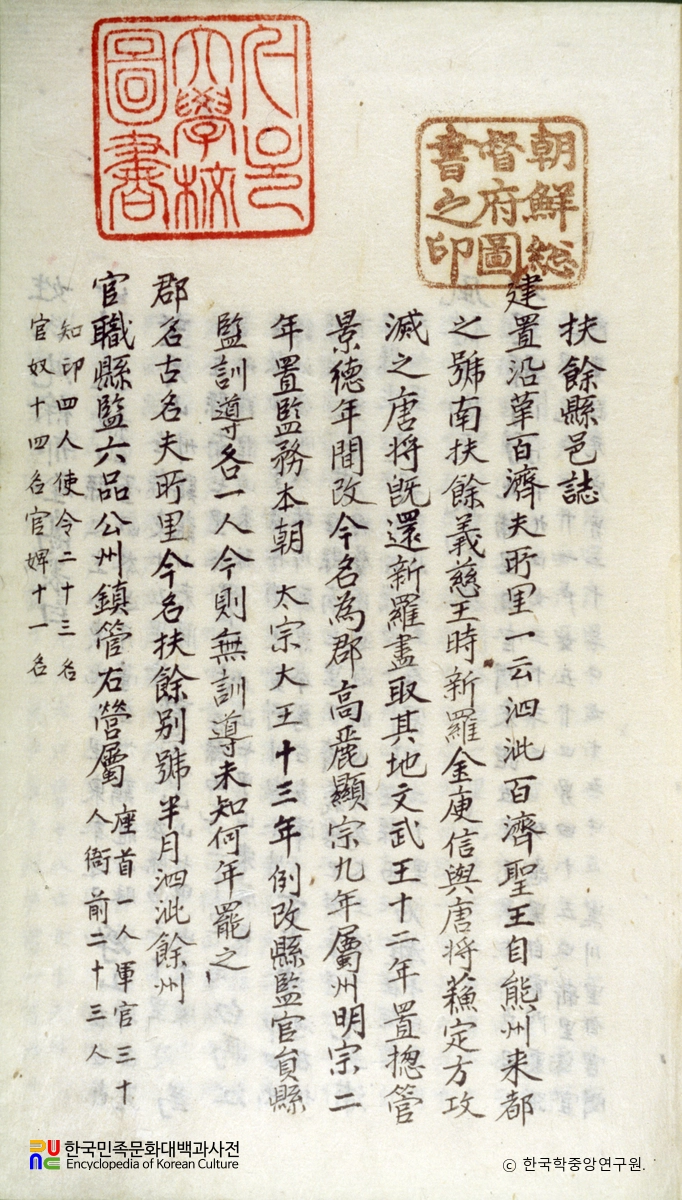 朝鮮総
督府圖
書之印
大學校
圖書
扶餘縣邑誌
建置沿革百濟夫所里一云泗沘百濟聖王自熊州来都
之號南扶餘義慈王時新羅金庾信與唐将蘓定方攻
滅之唐将旣還新羅盡取其地文武王十二年置摠管
景德年間改今名為郡高麗顯宗九年屬州明宗二
年置監務本朝 太宗大王十三年例改縣監官負縣
監訓導各一人今則無訓導未知何年罷之
郡名古名夫所里今名扶餘別號半月泗沘餘州
官職縣監六品公州鎮管右營屬 座首一人軍官三十
人衙前二十三人
知印四人使令二十三名
官奴十四名官婢十一名
한국민족문화대백과사전
Encyclopedia of Korean Culture
ⓒ 한국학중앙연구원.